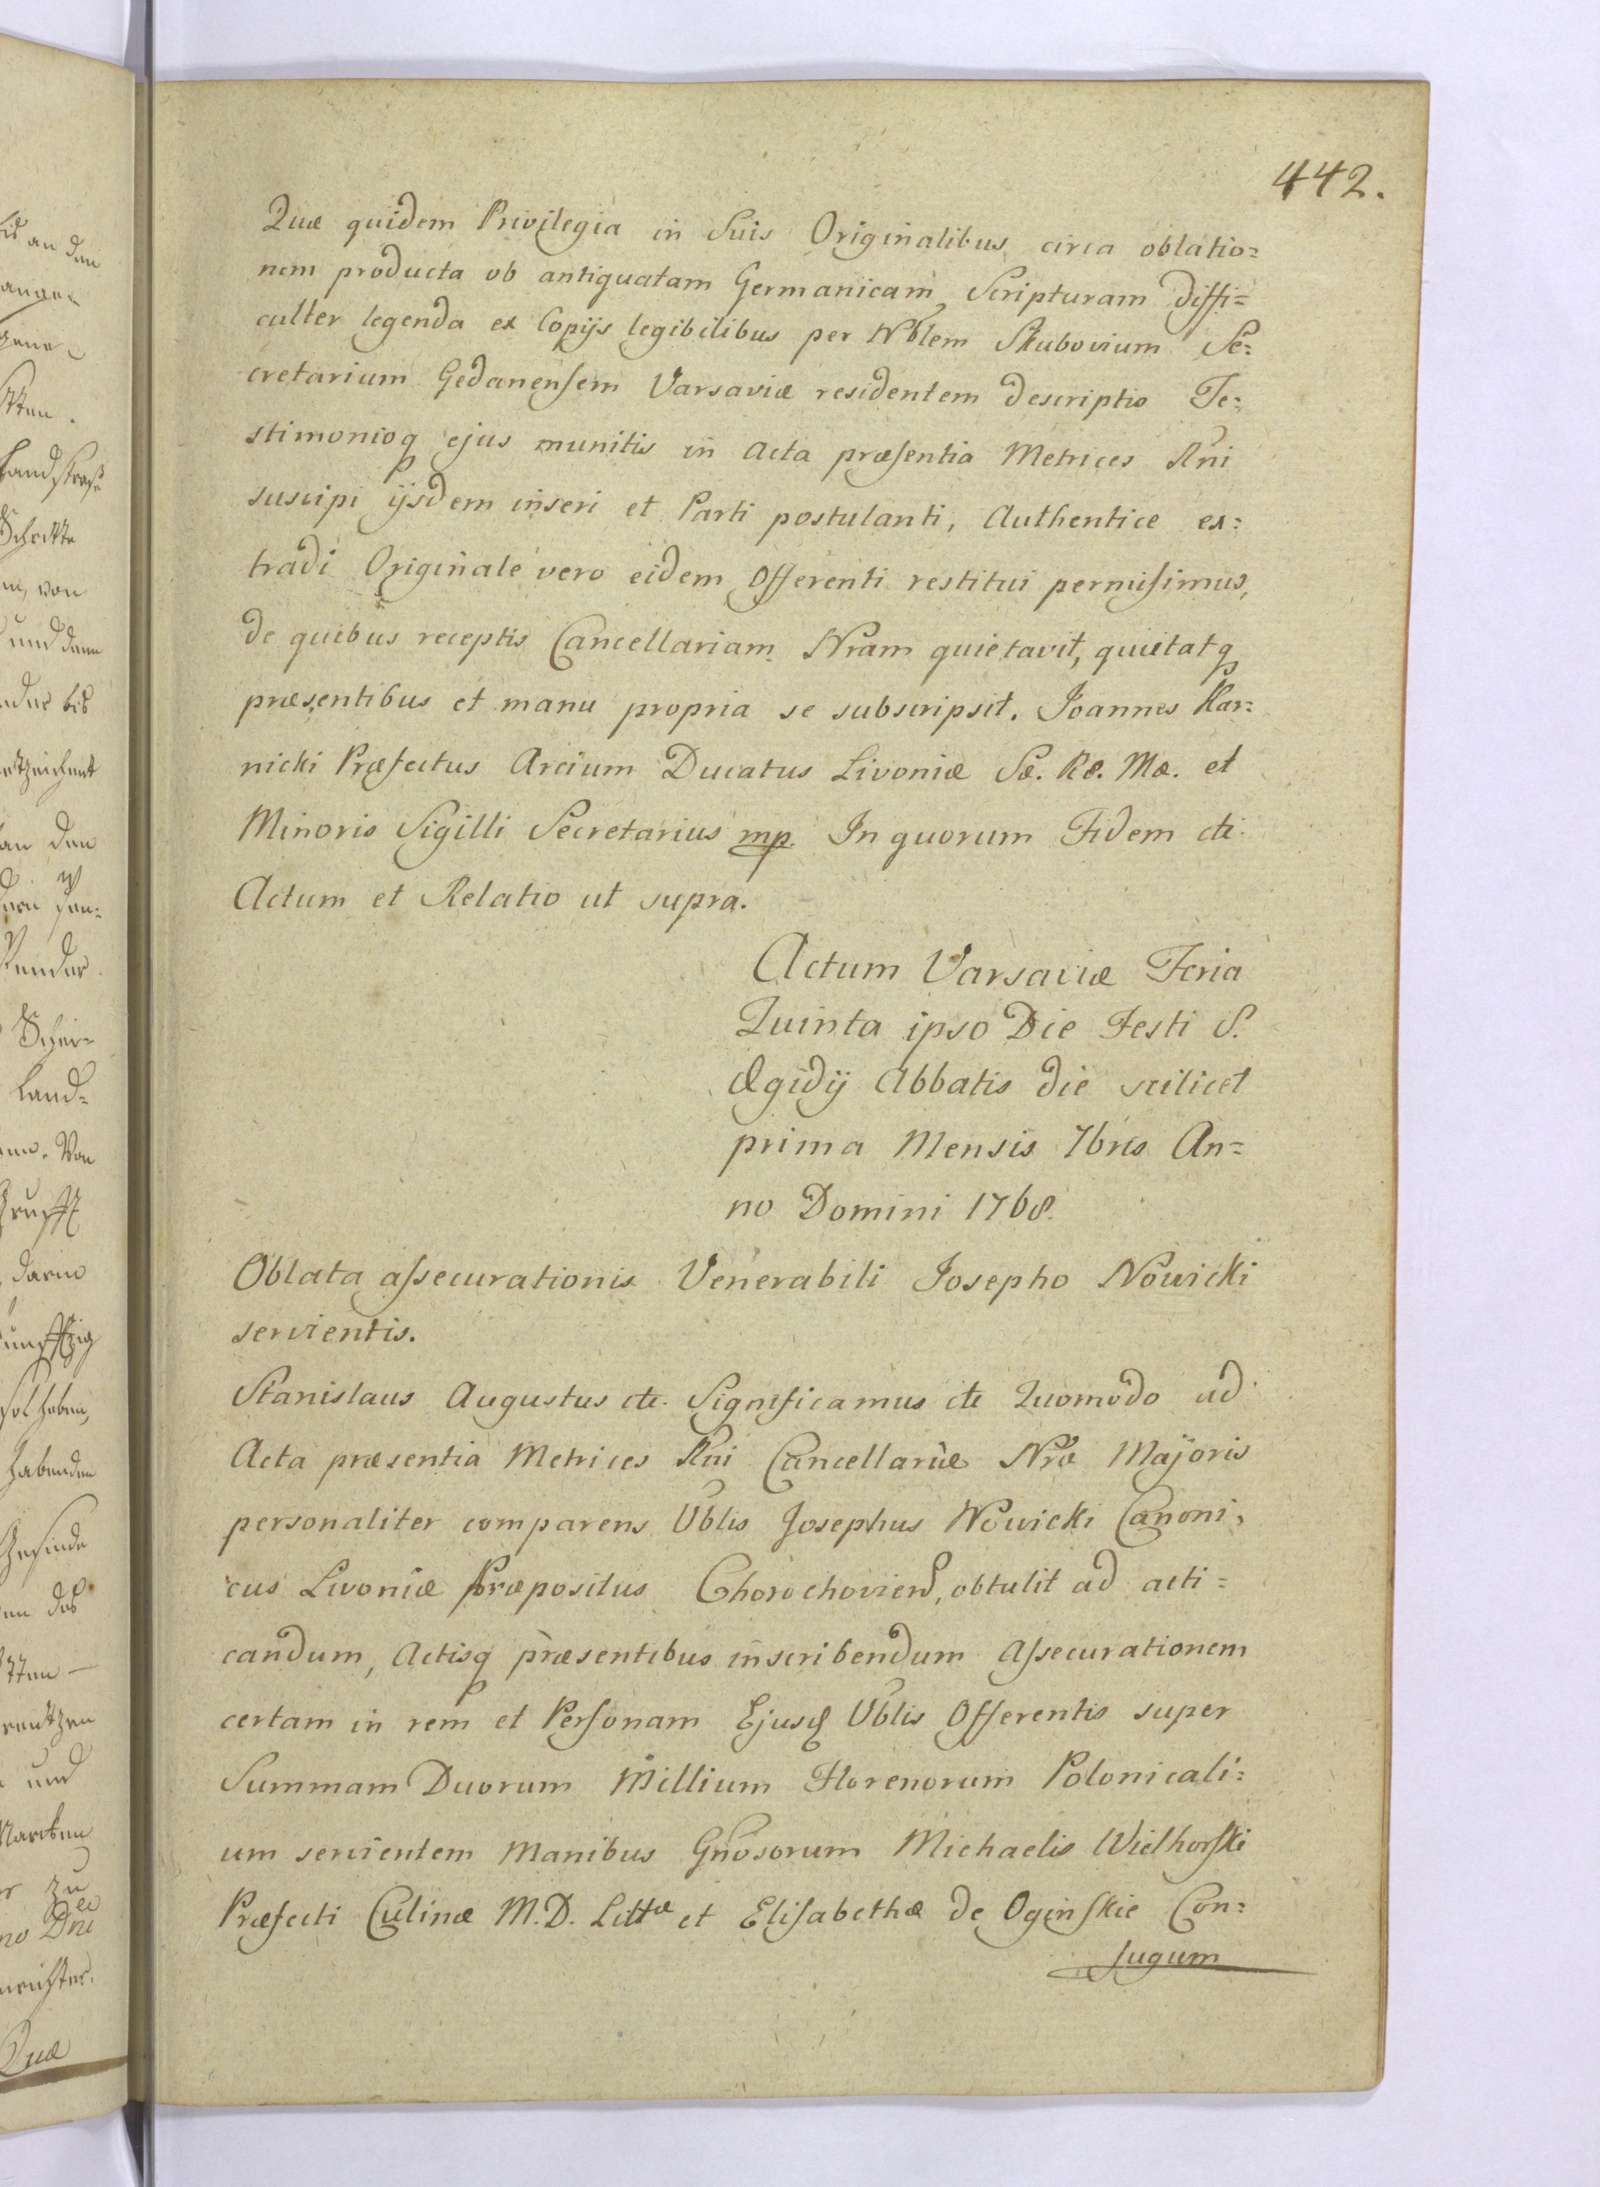 442.
Quæ quidem Privilegia in Suis Originalibus circa oblatio=
nem producta ob antiquatam Germanicam Scripturam diffi=
culter legenda ex Copijs legibilibus per Nblem Skubovium Se=
cretarium Gedanensem Varsaviæ residentem descriptis Te=
stimonioq ejus munitis in Acta præsentia Metrices Rni
suscipi ijsdem inseri et Parti postulanti, Authentice ex=
tradi Originale vero eidem Offerenti restitui permisimus,
de quibus receptis Cancellariam Nram quietavit, quietatq
præsentibus et manu propria se subscripsit. Joannes Kar=
nicki Præfectus Arcium Ducatus Livoniæ Sæ. Ræ. Mæ. et
Minoris Sigilli Secretarius mp. In quorum Fidem etc
Actum et Relatio ut supra.
Actum Varsaviæ Feria
Quinta ipso Die Festi S.
Ægidij Abbatis die scilicet
prima Mensis 7bris An=
no Domini 1768.
Oblata assecurationis Venerabili Josepho Nowicki
servientis.
Stanislaus Augustus etc. Significamus etc Quomodo ad
Acta præsentia Metrices Rni Cancellariæ Nræ Majoris
personaliter comparens Vblis Josephus Nowicki Canoni=
cus Livoniæ Præpositus obtulit ad acti=
candum, Actisq præsentibus inscribendum Assecurationem
certam in rem et Personam Ejusd Vblis Offerentis super
Summam Duorum Millium Florenorum Polonicali=
um servientem Manibus Gnosorum Michaelis Wielhorski
Præfecti Culinæ M.D. Littæ et Elisabethæ de Oginskie Con=
jugum